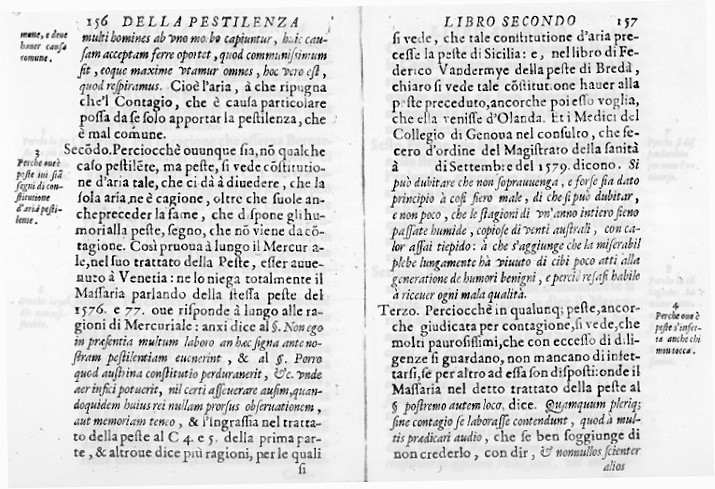 156 DELLA PESTILENZA
mune, e deue
hauer causa
comune.
multi homines ab vno morbo capiuntur, hæc cau-
sam acceptam ferre oportet, quod communissimum
sit, eoque maxime vtamur omnes, hoc vero est,
quod respiramus. Cioè l'aria, à che ripugna
che'l Contagio, che è causa particolare
possa da se solo apportar la pestilenza, che
è mal comune.
3
Perche oue è
peste iui siã
segni di con-
stitutione
d'aria pesti-
lente.
Secõdo. Perciocchè ouunque sia, nõ qualche
caso pestilẽte, ma peste, si vede cõstitutio-
ne d'aria tale, che ci dà à diuedere, che la
sola aria ne è cagione, oltre che suole an-
che preceder la fame, che dispone gli hu-
mori alla peste, segno, che nõ viene da cõ-
tagione. Così pruoua à lungo il Mercuria-
le, nel suo trattato della Peste, esser auue-
nuto à Venetia: ne lo niega totalmente il
Massaria parlando della stessa peste del
1576. e 77. oue risponde à lungo alle ra-
gioni di Mercuriale: anzi dice al §. Non ego
in præsentia multum laboro an hæc signa ante no-
stram pestilentiam euenerint, & al §. Porro
quod austrina constitutio perdurauerit, &c. vnde
aer infici potuerit, nil certi asseuerare ausim, quan-
doquidem huius rei nullam prorsus obseruationem,
aut memoriam teneo, & l'Ingrassia nel tratta-
to della peste al C 4. e 5. della prima par-
te, & altroue dice più ragioni, per le quali
si
LIBRO SECONDO 157
si vede, che tale constitutione d'aria pre-
cesse la peste di Sicilia: e, nel libro di Fe-
derico Vandermye della peste di Bredà,
chiaro si vede tale cõstitutione hauer alla
peste preceduto, ancorche poi esso voglia,
che ella venisse d'Olanda. Et i Medici del
Collegio di Genoua nel consulto, che fe-
cero d'ordine del Magistrato della sanità
à di Settembre del 1579. dicono. Si
può dubitare che non soprauuenga, e forse sia dato
principio à cosi fiero male, di che si può dubitar,
e non poco, che le stagioni di vn'anno intiero sieno
passate humide, copiose di venti australi, con ca-
lor assai tiepido: à che s'aggiunge che la miserabil
plebe lungamente hà viuuto di cibi poco atti alla
generatione de humori benigni, e perciò resasi habile
à riceuer ogni mala qualità.
Terzo. Perciocchè in qualunq; peste, ancor-
che giudicata per contagione, si vede, che
molti paurosissimi, che con eccesso di dili-
genze si guardano, non mancano di infet-
tarsi, se per altro ad essa son disposti: onde il
Massaria nel detto trattato della peste al
§ postremo autem loco, dice. Quamquum pleriq;
sine contagio se laborasse contendunt, quod à mul-
tis prædicari audio, che se ben soggiunge di
non crederlo, con dir, & nonnullos scienter
alios
4
Perche oue è
peste s'infet-
ta anche chi
non tocca.